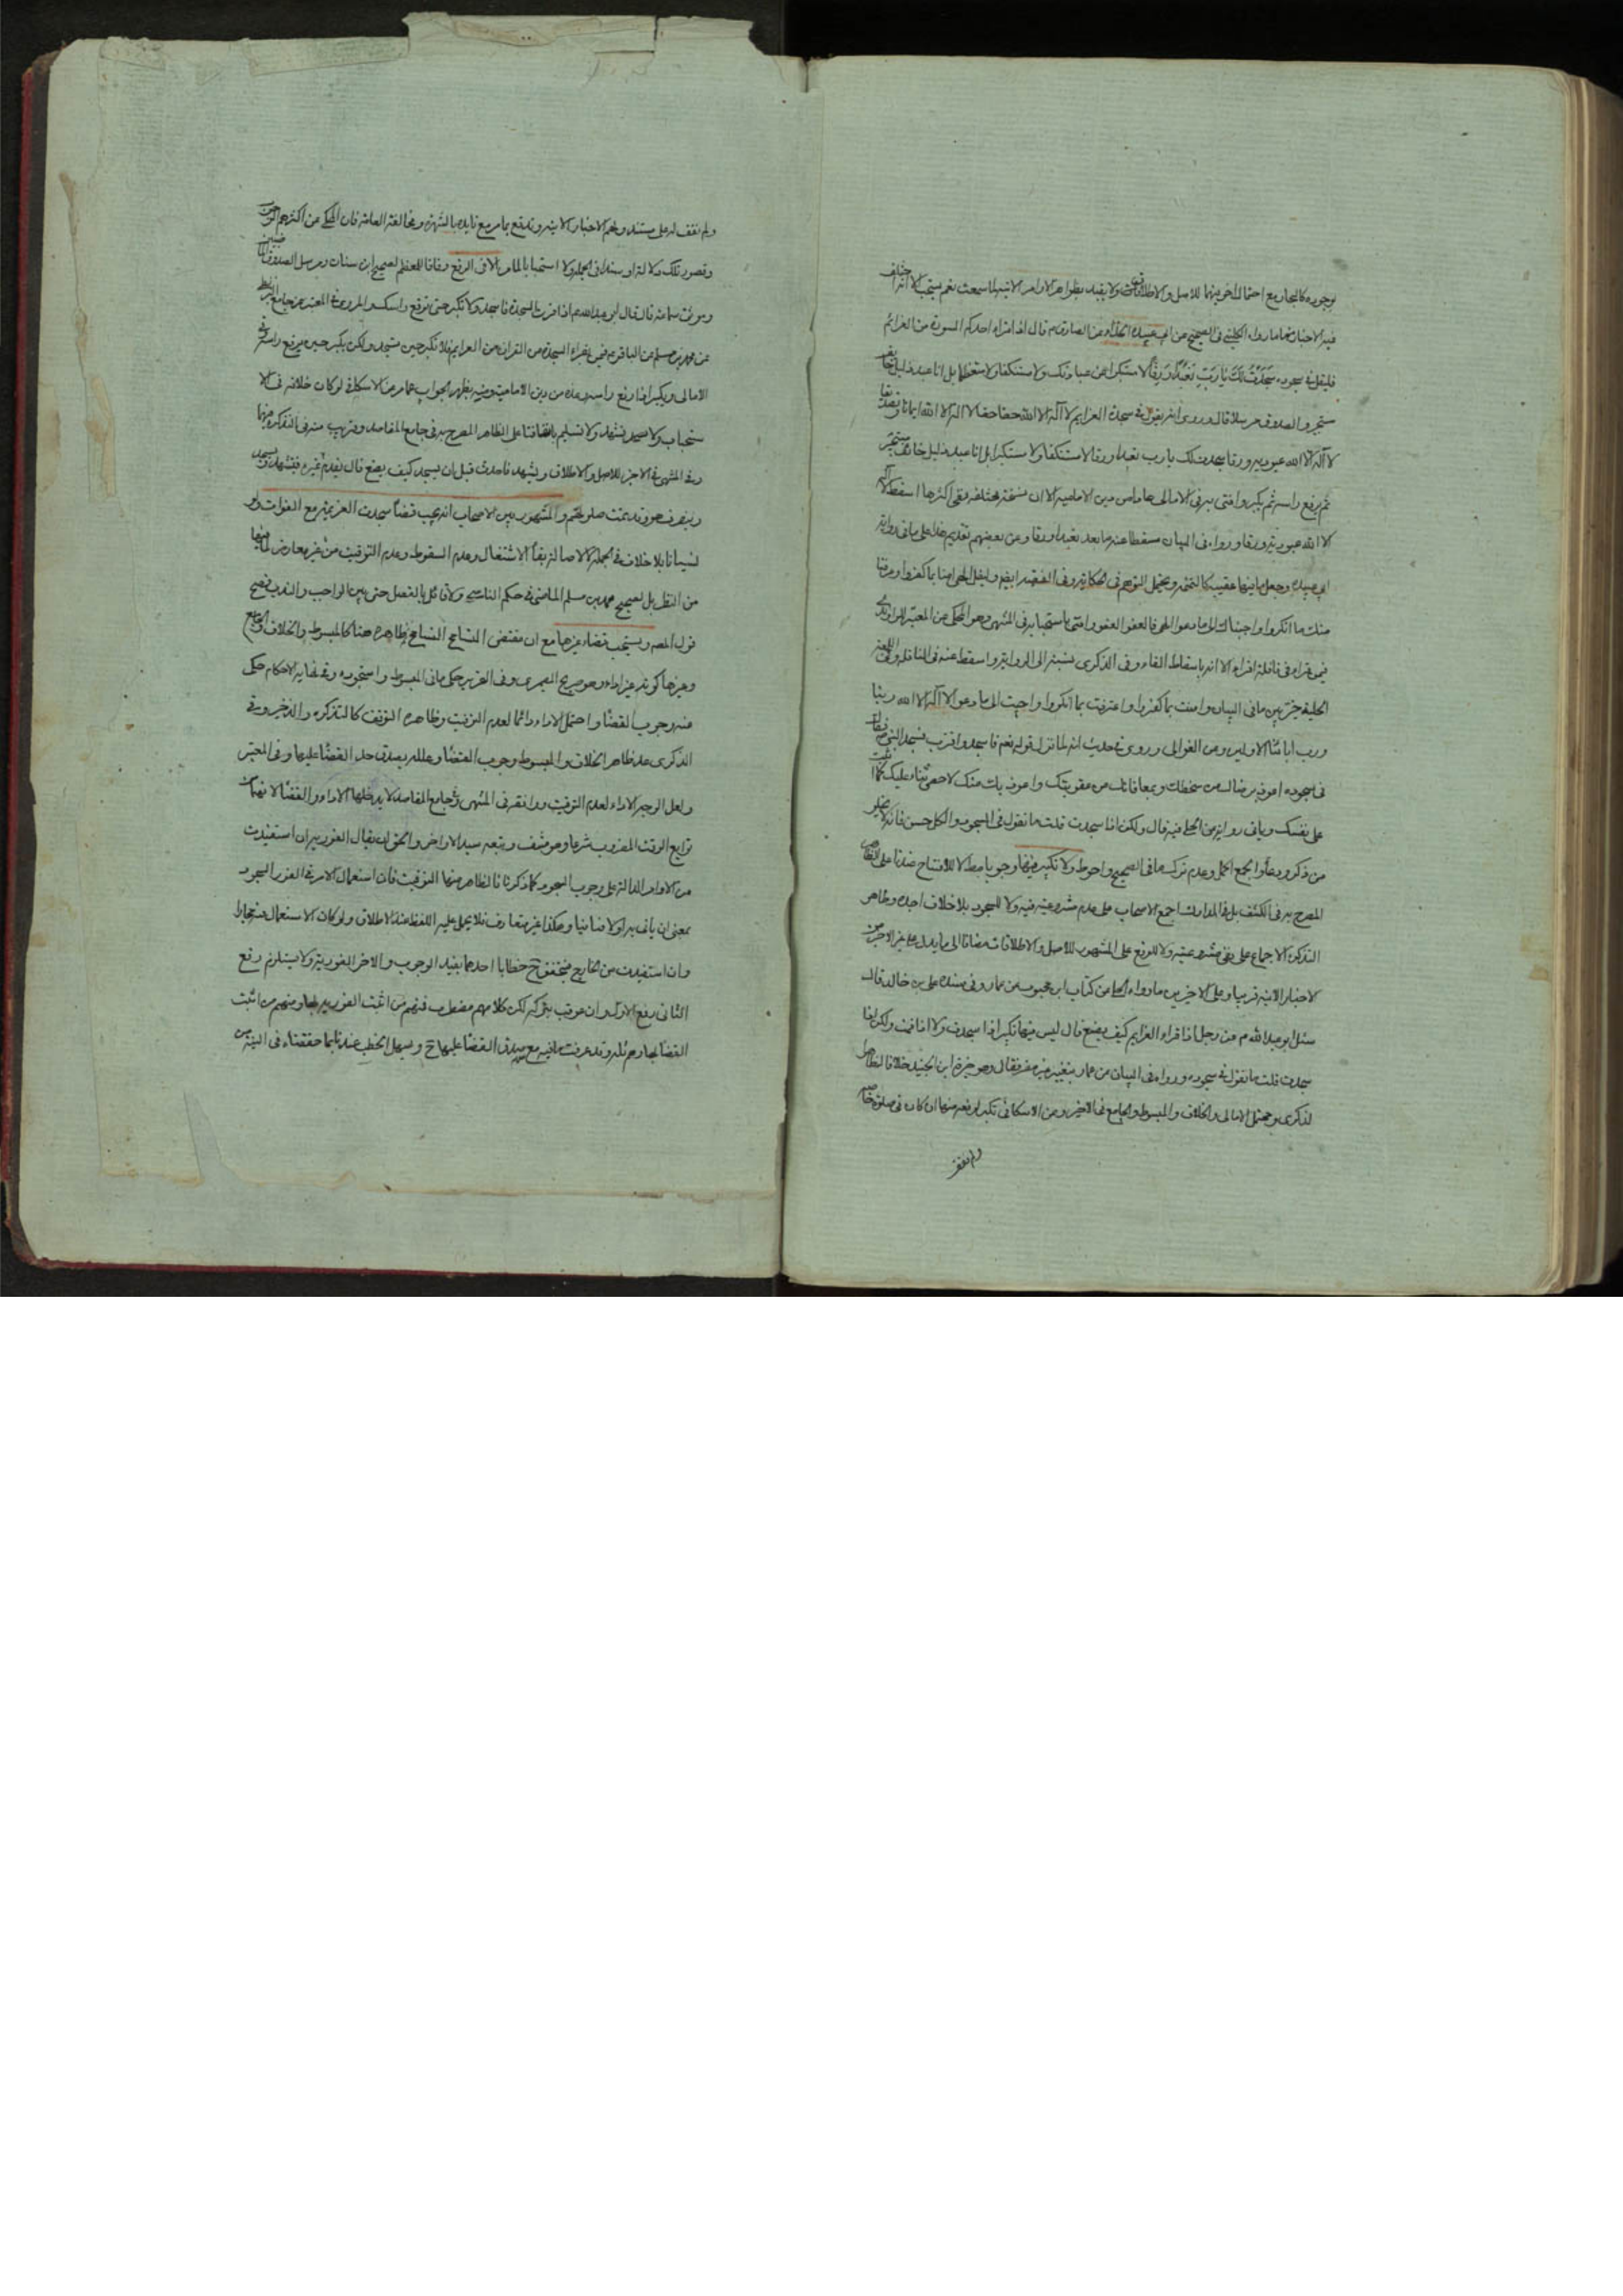 بوجوبه كالبحار مع احتمال اخر بينهما للاصل والاطلاقات ولا يفيد بظواهر الاوامر الاتية لما سمعت نعم يستحب الا انه اختلف
فيه الاخبار فمنها ما رواه الكليني في الصحيح عن ابي عبيدة الحذاء عن الصادق ع قال اذا قراء احدكم السورة من العزائم
فليقل في سجوده سَجَدْتُ لَكَ يَا رَبِّ تَعَبُّدًا وَرِقًّا لا مستكبرا عن عبادتك ولا مستنكفا ولا مستعظما بل انا عبد ذليل خائف
مستجير والصدوق مرسلا قال وروى انه يقول في سجدة العزايم لا اله الا الله حقا حقا لا اله الا الله ايمانا وتصديقا
لا اله الا الله عبودية ورقا سجدت لك يا رب تعبدا ورقا لا مستنكفا ولا مستكبرا بل انا عبد ذليل خائف مستجير
ثم يرفع راسه ثم يكبر وافتى به في الامالى من دين الامامية الا ان نسخه مختلفة ففي اكثرها اسقط لا اله
الا الله عبودية ورقا ورواه في البيان مسقطا عنه ما بعد تعبدا ورقا وعن بعضهم تقديم هذا على ما في رواية
ابي عبيدة وجعل ما بينها عقيبه كالتتمة ويحتمل التوهم في الحكاية وفي الفقيه ايضا وليقل الهى امنا بما كفروا وعرفنا
منك ما انكروا واجبناك الى ما دعوا الهى فالعفو العفو وافتى باستحبابه في المنتهى وهو المحكى عن المعتبر
فيمن قراء في نافلة اقراء الا انه باسقاط الفاء وفي الذكرى نسبته الى الرواية واسقط عنه في النافلة وفي
الحلية خيّر بين ما في البيان وامنت بما كفروا وعرفت بما انكروا واجبت الى ما دعوا لا اله الا الله ربنا
ورب ابائنا الاولين وعن الغوالى وروى في حديث انه لما نزل قوله تعم فاسجد واقترب فسجد النبي ص فقال
في سجوده اعوذ برضاك من سخطك وبمعافاتك من عقوبتك واعوذ بك منك لا احصى ثناء عليك كما اثنيت
على نفسك وياتي رواية من الحلي فيه قال ولكن اذا سجدت قلت ما تقول في السجود والكل حسن فانه لا يخلو
من ذكر ودعاء والجمع اكمل وعدم ترك ما في الصحيح احوط ولا تكبير فيها وجوبا مطلا للافتتاح عندنا على الظاهر
المصرح به في الكشف بل في المدارك اجمع الاصحاب على عدم مشروعيته فيه ولا للسجود بلا خلاف اجده وظاهر
التذكرة الاجماع على نفي مشروعيته ولا للرفع على المشهور للاصل والاطلاقات مضافا الى ما يدل على غير الاخير من
الاخبار الاتية قريبا وعلى الاخيرين ما رواه الحلي من كتاب ابن محبوب عن عمار وفي سنده علي بن خالد قال
سئل ابو عبد الله ع عن رجل اذا قراء العزايم كيف يصنع قال ليس فيها تكبير اذا سجدت ولا اذا قمت ولكن اذا
سجدت قلت ما تقول في سجوده ورواه في البيان عن عمار بتغيير غير مضر فقال وهو خيرة ابن الجنيد خلافا لظاهر
الذكرى ومحتمل الامالى والخلاف والمبسوط والجامع في الاخير وعن الاسكافي تكبير لرفعه منها ان كان في صلوة خاصة
ولم نقف
ولم نقف له على مستند ولهم الاخبار الاتية وتدفع بما مر مع تايدها بالشهرة ومخالفة العامة فان المحكى عن اكثرهم
وقصور تلك دلالة او سندا في الجملة ولا استحبابا لما مر الا في الرفع وفاقا للمعظم لصحيح ابن سنان ومرسل الصدوق
وموثق سماعة قال قال ابو عبد الله ع اذا قرات السجدة فاسجد ولا تكبر حتى ترفع راسك والمروي في المعتبر عن جامع البزنطي
عن محمد بن مسلم عن الباقر ع فيمن يقراء السجدة من القران من العزايم فلا تكبر حين تسجد ولكن يكبر حين يرفع راسه وفي
الامالى ويكبر اذا رفع راسه وعده من دين الامامية ومنه يظهر الجواب عما مر عن الاسكافي لو كان خلافه في الا
ستحباب ولا تشهد ولا تسليم باتفاقنا على الظاهر المصرح به في جامع المقاصد وقريب منه في التذكرة
وفي المنتهى في الاخير للاصل والاطلاق ويشهد فاحدث قبل ان يسجد كيف يصنع قال يقدم غيره فيتشهد ويسجد
وينصرف هو وقد تمت صلوتهم والمشهور بين الاصحاب انه يجب قضاء سجدة العزيمة مع الفوات ولو
نسيانا بلا خلاف في الجملة لاصالة بقاء الاشتغال وعدم السقوط وعدم التوقيت من غير معارض
من النقل بل لصحيح محمد بن مسلم الماضي في حكم الناسي ولا قائل بالفصل حتى بين الواجب والندب فصح
قول المصه ويستحب قضاء غيرها مع ان مقتضى التسامح التسامح وظاهره هنا كالمبسوط والخلاف والجامع
وغيرها كونه غير اداء وهو صريح وفي التحرير حكى ما في المبسوط واستجوده وفي نهاية الاحكام حكى
عنه وجوب القضاء واحتمل الاداء دائما لعدم التوقيت وظاهره التوقف كالتذكرة والذخيرة وفي
الذكرى عد ظاهر الخلاف والمبسوط وجوب القضاء وعلله بصدق حد القضا عليها وفي المعتبر
ولعل الوجه الاداء لعدم التوقيت ووافقه في المنتهى وفي جامع المقاصد لا يدخلها الاداء والقضا لانهما من
توابع الوقت المضروب شرعا وهو منتف وتبعه سيد الاواخر والحق ان يقال الفورية ان استفيدت
من الاوامر الدالة على وجوب السجود كما ذكرنا فالظاهر منها التوقيت فان استعمال الامر في الفور السجود
بمعنى ان ياتي به اولا فثانيا وهكذا غير متعارف فلا يحمل عليه اللفظ عند الاطلاق ولو كان الاستعمال
وان استفيدت من الخارج فيتحقق ح خطابا احدهما يفيد الوجوب والاخر الفورية ولا يستلزم رفع
الثاني رفع الاول وان عوقب بتركه لكن كلامهم مضطرب فمنهم من اثبت الفورية لها ومنهم من اثبت
القضا لها وقد عرفت ما فيه مع صدق القضا عليها ح ويسهل الخطب عندنا بما حققناه في النية من